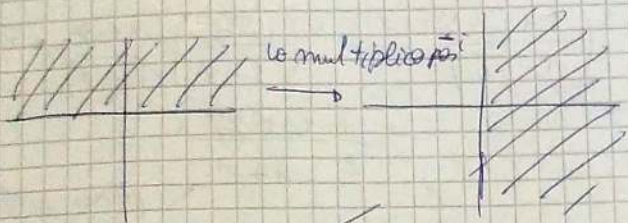 lo multiplico por -i